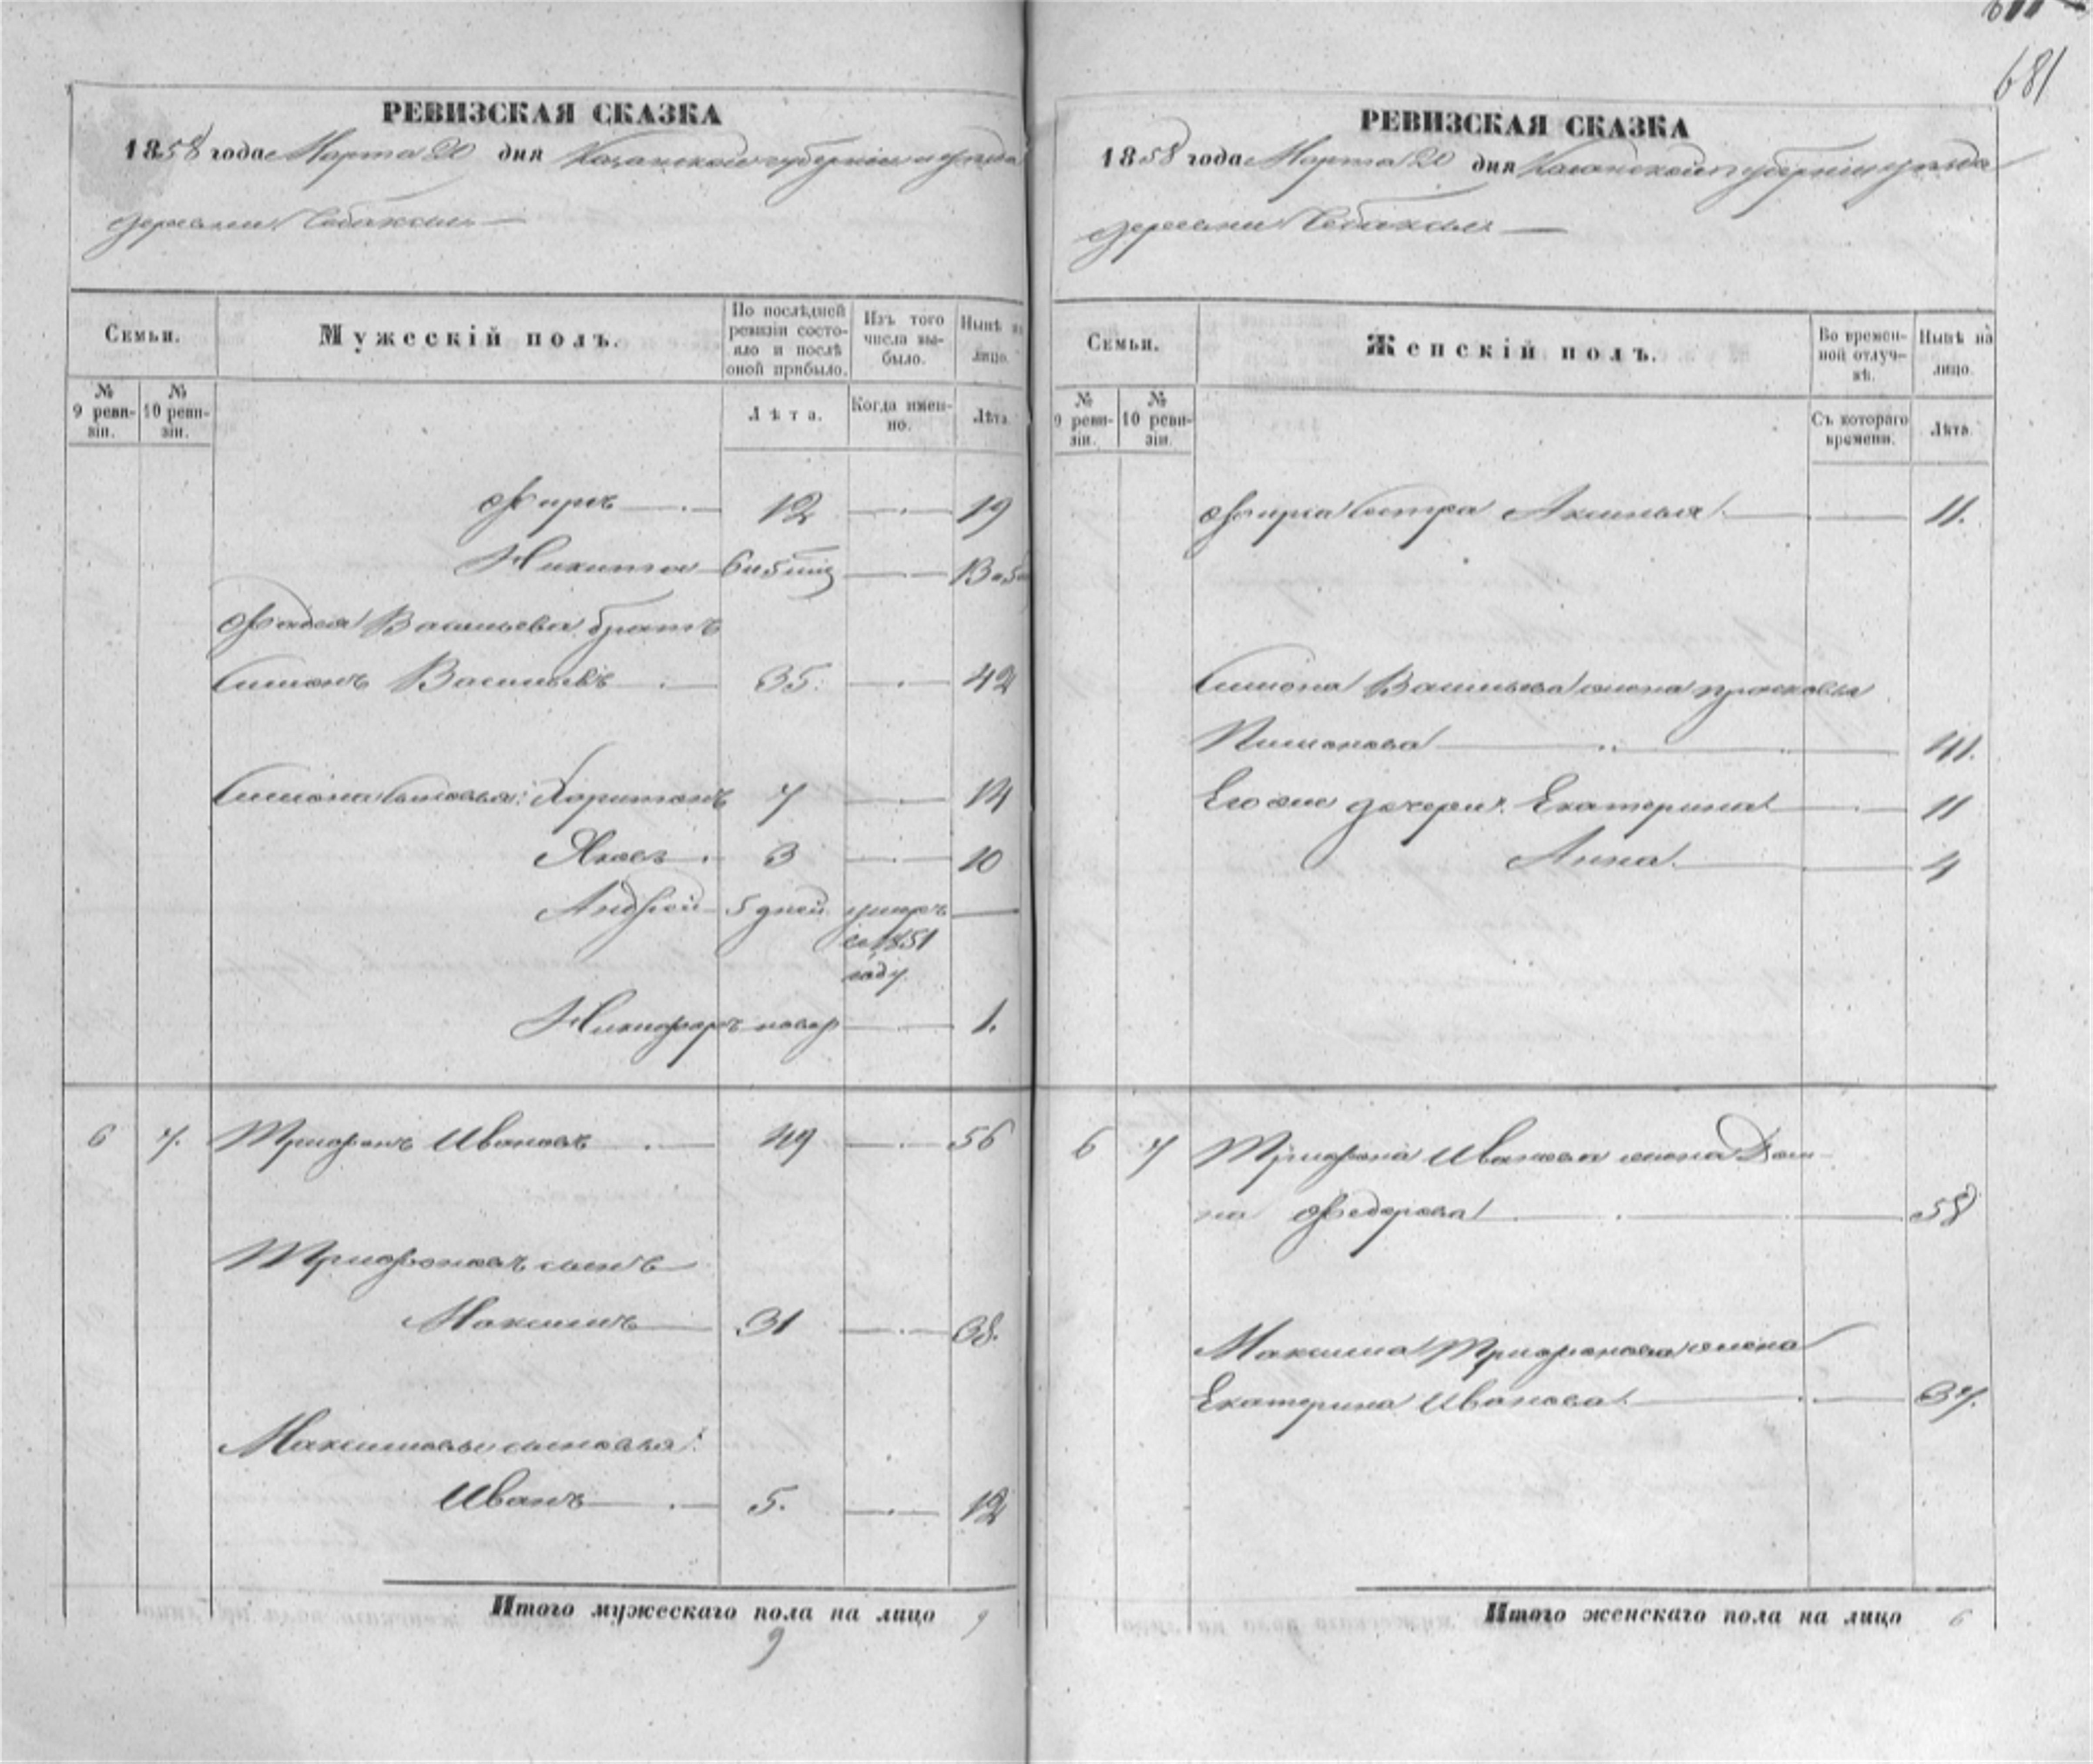 681
РЕВИЗСКАЯ СКАЗКА
1858 года Марта 20 дня Казанской губерніи и уѣзда
деревни
Семьи.
Мужескій полъ.
По послѣдней ревизіи состояло и послѣ оной прибыло.
Изъ того числа выбыло.
Нынѣ на лицо.
№ 9 ревизіи.
№ 10 ревизіи.
Лѣта.
Когда именно.
Лѣта
Фирсъ 12 19
Никита 6 и 5 мѣс 13 и 5
Фадея Васильева братъ
Симонъ Васильевъ 35. 42
Симона сыновья: Харитонъ 7 14
Яковъ 3 10
Андрей 5 дней умеръ
въ 1851
году
Никифоръ новор 1.
6 7. Трифонъ Ивановъ 49 56
Трифоновъ сынъ
Максимъ 31 38.
Максимовы сыновья:
Иванъ 5. 12
Итого мужескаго пола на лицо 9
9
РЕВИЗСКАЯ СКАЗКА
1858 года Марта 20 дня Казанской губерніи уѣзда
деревни
Семьи.
Женскій полъ.
Во временной отлучкѣ.
Нынѣ на лицо.
№ 9 ревизіи.
№ 10 ревизіи.
Съ котораго времени.
Лѣта
Фирса сестра Аксинья 11.
Симона Васильева жена Прасковья
41.
Его же дочери: Екатерина 11
Анна 4
6 7 Трифона Иванова жена Дом-
на Федорова 58
Максима Трифонова жена
Екатерина Иванова 37.
Итого женскаго пола на лицо 6